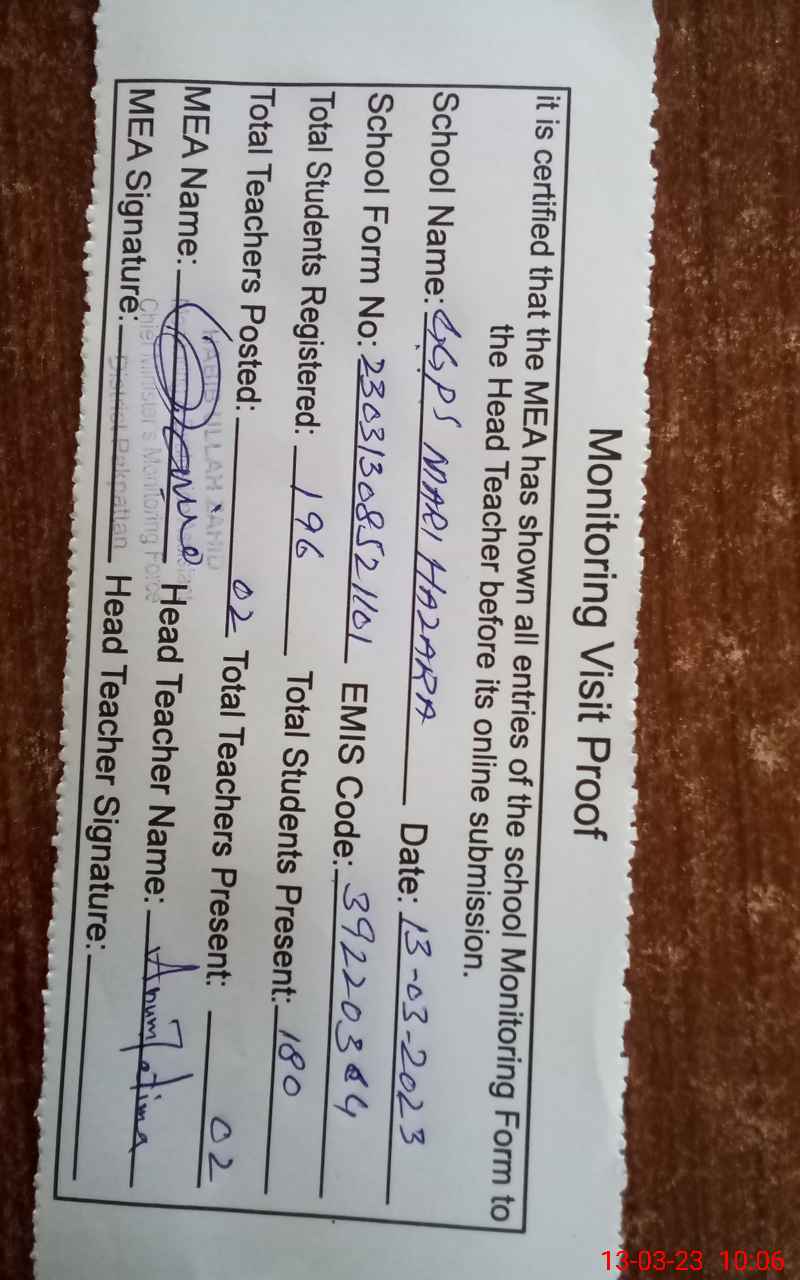 Monitoring Visit Proof
it is certified that the MEA has shown all entries of the school Monitoring Form to
the Head Teacher before its online submission.
School Name: GGPS MARI HAZARA Date: 13-03-2023
School Form No: 23031308521101 EMIS Code: 39220364
Total Students Registered: 196 Total Students Present: 180
Total Teachers Posted: 02 Total Teachers Present: 02
MEA Name: Head Teacher Name: Anum Fatima
MEA Signature: Head Teacher Signature:
HABIB ULLAH ZAHID
Chief Minister's Monitoring Force
District Pakpattan
13-03-23 10:06